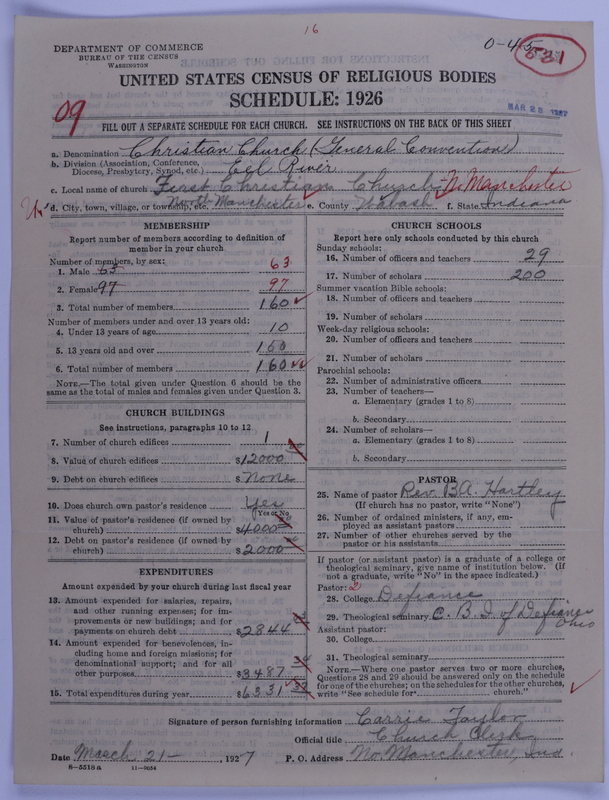 16
DEPARTMENT OF COMMERCE
BUREAU OF THE CENSUS
WASHINGTON
0-45
531
UNITED STATES CENSUS OF RELIGIOUS BODIES
SCHEDULE: 1926
09
MAR 26 1927
FILL OUT A SEPARATE SCHEDULE FOR EACH CHURCH. SEE INSTRUCTIONS ON THE BACK OF THIS SHEET
a. Denomination Christian Church (General Convention)
b. Division (Association, Conference, Diocese, Presbytery, Synod, etc.) Eel River
c. Local name of church First Christian Church - N. Manchester
d. City, town, village, or township, etc. North Manchester e. County Wabash f. State Indiana
MEMBERSHIP
Report number of members according to definition of member in your church
Number of members, by sex:
1. Male 63 63
2. Female 97 97
3. Total number of members 160
Number of members under and over 13 years old:
4. Under 13 years of age 10
5. 13 years old and over 150
6. Total number of members 160
NOTE.—The total given under Question 6 should be the same as the total of males and females given under Question 3.
CHURCH BUILDINGS
See instructions, paragraphs 10 to 12
7. Number of church edifices 1
8. Value of church edifices $12000
9. Debt on church edifices $ None
10. Does church own pastor's residence Yes
(Yes or No)
11. Value of pastor's residence (if owned by church) $4000
12. Debt on pastor's residence (if owned by church) $2000
EXPENDITURES
Amount expended by your church during last fiscal year
13. Amount expended for salaries, repairs, and other running expenses; for improvements or new buildings; and for payments on church debt $2844
14. Amount expended for benevolences, including home and foreign missions; for denominational support; and for all other purposes $3487
15. Total expenditures during year $6331
CHURCH SCHOOLS
Report here only schools conducted by this church
Sunday schools:
16. Number of officers and teachers 29
17. Number of scholars 200
Summer vacation Bible schools:
18. Number of officers and teachers
19. Number of scholars
Week-day religious schools:
20. Number of officers and teachers
21. Number of scholars
Parochial schools:
22. Number of administrative officers
23. Number of teachers—
a. Elementary (grades 1 to 8)
b. Secondary
24. Number of scholars—
a. Elementary (grades 1 to 8)
b. Secondary
PASTOR
25. Name of pastor Rev. B.A. Hartley
(If church has no pastor, write "None")
26. Number of ordained ministers, if any, employed as assistant pastors
27. Number of other churches served by the pastor or his assistants
If pastor (or assistant pastor) is a graduate of a college or theological seminary, give name of institution below. (If not a graduate, write "No" in the space indicated.)
Pastor: 2
28. College Defiance
29. Theological seminary C. B. I. of Defiance Ohio
Assistant pastor:
30. College
31. Theological seminary
NOTE.—Where one pastor serves two or more churches, Questions 28 and 29 should be answered only on the schedule for one of the churches; on the schedules for the other churches, write "See schedule for church."
Signature of person furnishing information Carrie Taylor
Official title Church Clerk
Date March 21 - , 1927 P. O. Address No. Manchester, Ind
8-5518a 11-9654